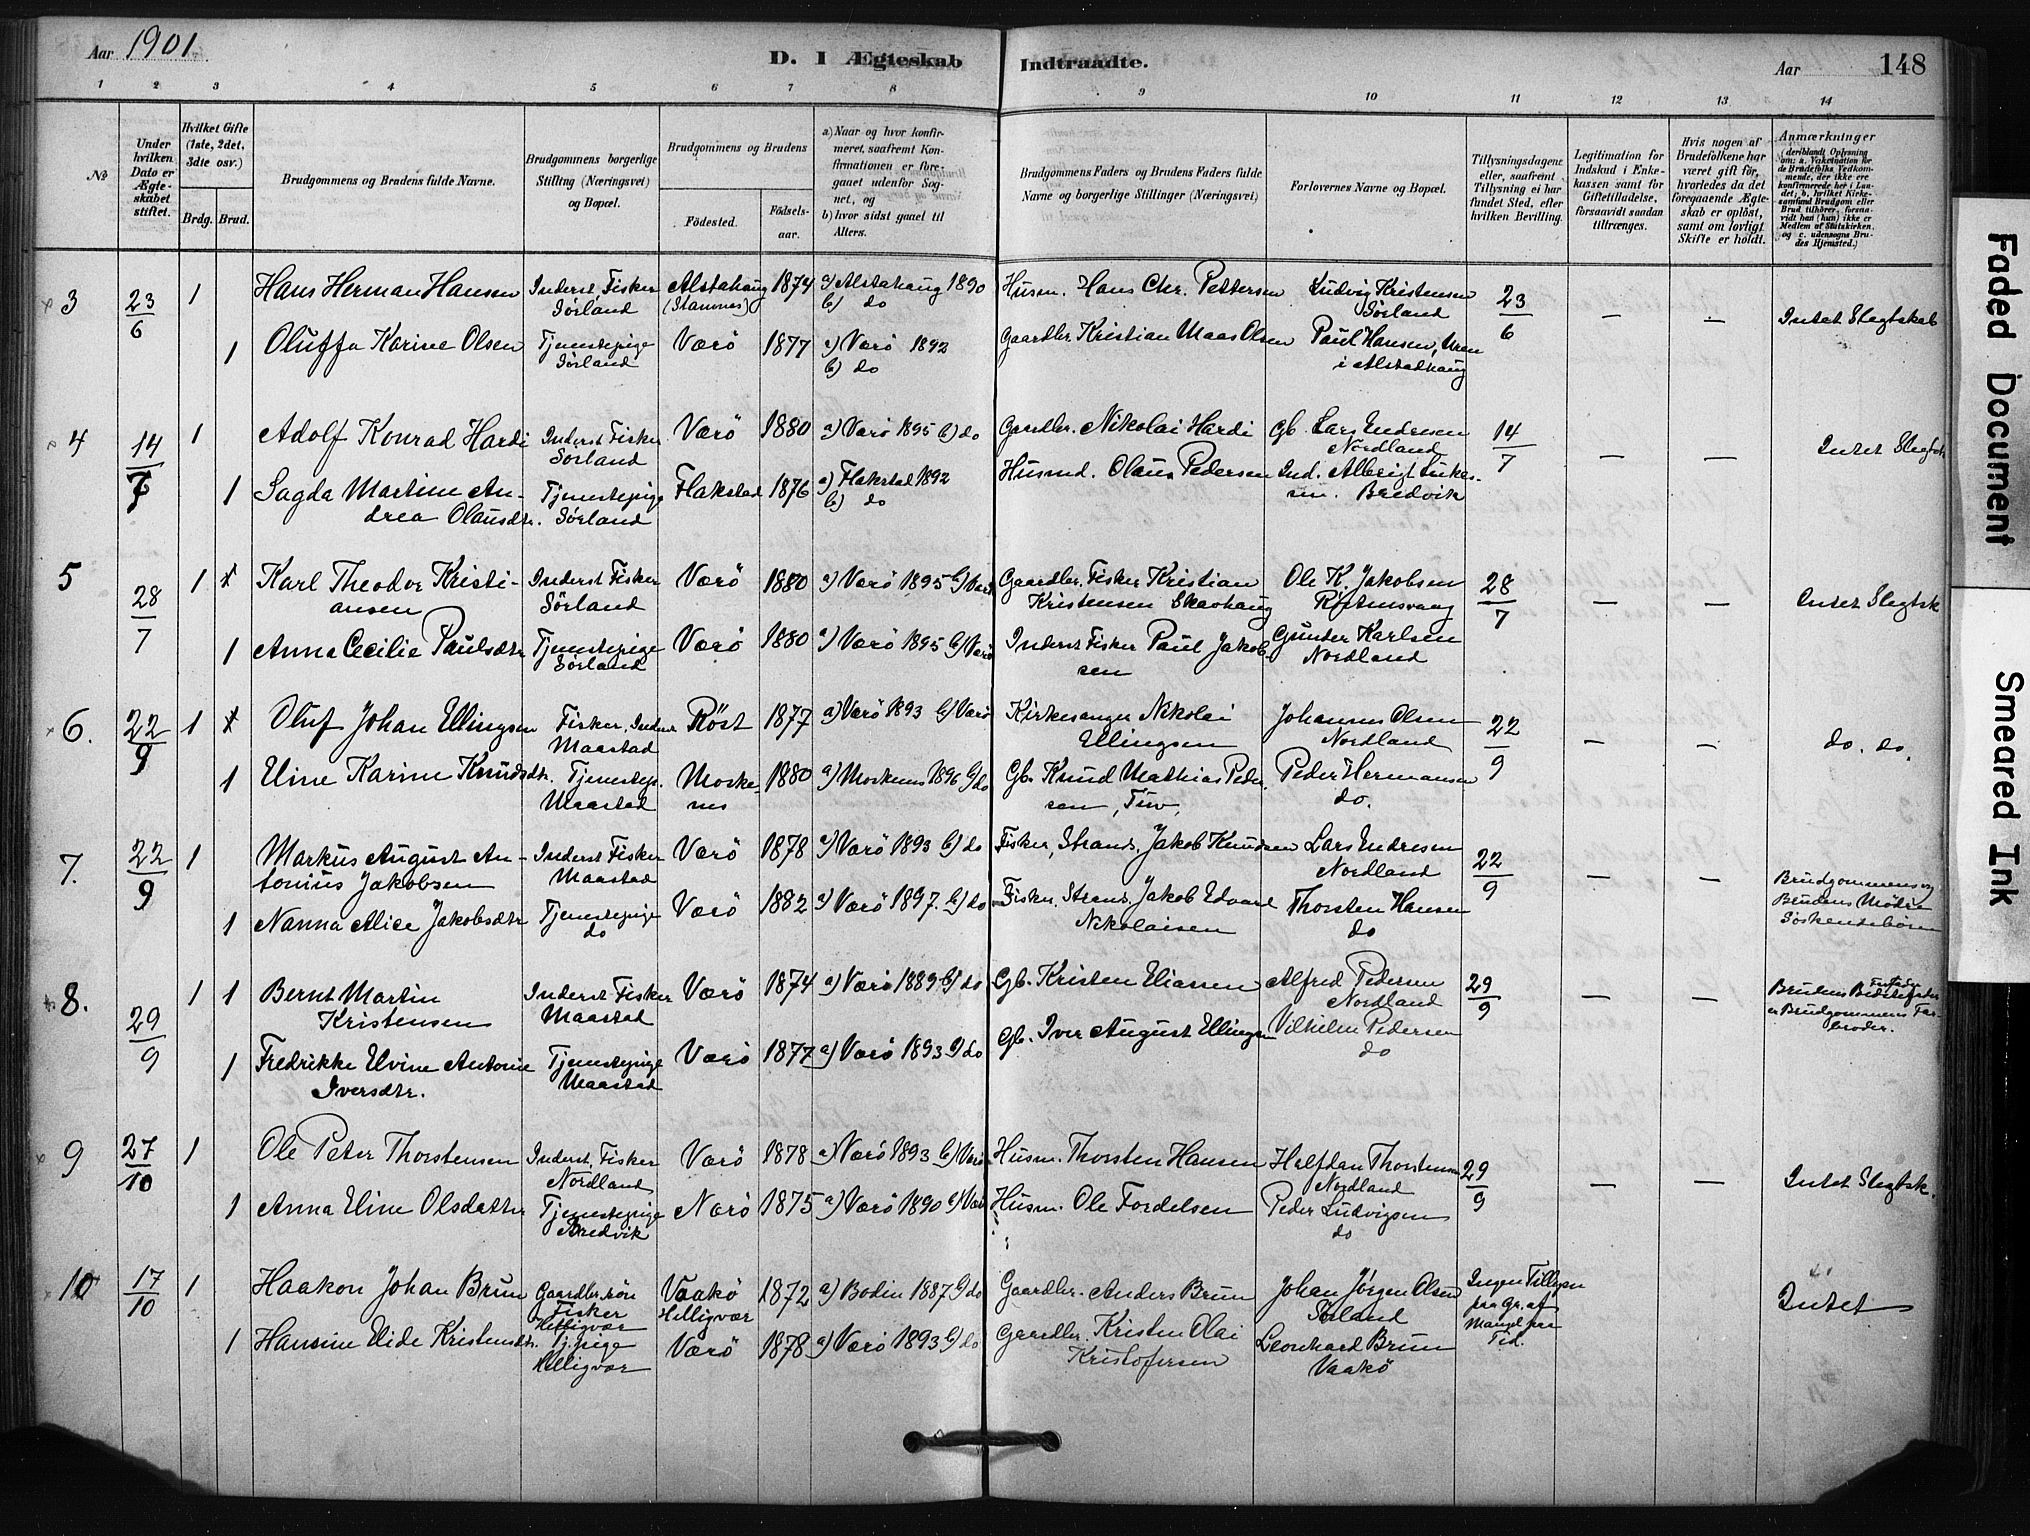 Aar 1901
D. I Ægteskab Indtraadte.
Aar 148
1 2 3 4 5 6 7 8 9 10 11 12 13 14
No
Under hvilken Dato er Ægteskabet stiftet.
Hvilket Gifte (1ste, 2det, 3die osv.)
Brdg. Brud.
Brudgommens og Brudens fulde Navne.
Brudgommens borgerlige Stilling (Næringsvei) og Bopæl.
Brudgommens og Brudens
Fødested.
Fødsels-aar.
a) Naar og hvor konfirmeret, saafremt Konfirmationen er foregaaet udenfor Sognet, og
b) hvor sidst gaaet til Alters.
Brudgommens Faders og Brudens Faders fulde Navne og borgerlige Stillinger (Næringsvei)
Forlovernes Navne og Bopæl.
Tillysningsdagene eller, saafremt Tillysning ei har fundet Sted, efter hvilken Bevilling.
Legitimation for Indskud i Enkekassen samt for Giftetilladelse, forsaavidt saadan tiltrænges.
Hvis nogen af Brudefolkene har været gift før, hvorledes da det foregaaende Ægteskab er opløst, samt om lovligt Skifte er holdt.
Anmærkninger
(deriblandt Oplysning om: a. Vakcination for de Brudefolks Vedkommende, der ikke ere konfirmerede her i Landet; b. hvilket Kirkesamfund Brudgom eller Brud tilhører, forsaavidt han (hun) ikke er Medlem af Statskirken, og c. udensogns Brudes Hjemsted.)
3 23/6 1 Hans Herman Hansen Inderst Fisker Sørland Alstahaug (Stamnes) 1874 a) Alstahaug 1890 b) do Husm. Hans Chr. Pettersen Ludvig Kristensen Sørland 23/6 — — Intet Slegtskab
1 Oluffa Karine Olsen Tjenestepige Sørland Værö 1877 a) Værö 1892 b) do Gaardbr. Kristian Maas Olsen Paul Hansen, i Alstadhaug
4 14/7 1 Adolf Konrad Hardi Inderst Fisker Sørland Værö 1880 a) Værö 1895 b) do Gaardbr. Nikolai Hardi Gb. Lars Endresen Nordland 14/7 — — Intet Slegtsk
1 Sagda Martine Andrea Olausdtr. Tjenestepige Sørland Flakstad 1876 a) Flakstad 1892 b) do Husmd. Olaus Pedersen Ind. Albrigt Lukassen. Bredvik
5 28/7 1 Karl Theodor Kristiansen Inderst Fisker Sørland Værö 1880 a) Værö 1895 b) Værö Gaardbr. Fisker Kristian Kristensen Skavhaug Ole K. Jakobsen 28/7 — — Intet Slegtsk
1 Anna Cecilie Paulsdtr Tjenestepige Sørland Værö 1880 a) Værö 1895 b) Værö Inderst Fisker Paul Jakobsen Gunder Karlsen Nordland
6. 22/9 1 Oluf Johan Ellingsen Fisker, Inderst Maastad Röst 1877 a) Værö 1893 b) Værö Kirkesanger Nikolai Ellingsen Johannes Olsen Nordland 22/9 — — do. do.
1 Eline Karine Knudsdtr. Tjenestepg. Maastad Moskenes 1880 a) Moskenes 1896 b) do Gb. Knud Mathias Pedersen, Tuv, Peder Hermansen do.
7. 22/9 1 Markus August Antonius Jakobsen Inderst Fisker Maastad Værö 1878 a) Værö 1893 b) do Fisker, Strands. Jakob Knudsen Lars Endresen Nordland 22/9 — — Brudgommens og Brudens Mødre Søskendebörn
1 Nanna Alice Jakobsdtr Tjenestepige do Værö 1882 a) Værö 1897. b) do Fisker, Strands. Jakob Edvard Nikolaisen Thorsten Hansen do
8. 29/9 1 1 Bernt Martin Kristensen Inderst Fisker Maastad Værö 1874 a) Værö 1889 b) do Gb. Kristen Eliassen Alfred Pedersen Nordland 29/9 — — Brudens Bedstefader er Brudgommens Farbroder.
1 Fredrikke Elvine Antonie Iversdtr. Tjenestepige Maastad Værö 1877 a) Værö 1893 b) do Gb. Iver August Ellingsen Vilhelm Pedersen do
9 27/10 1 Ole Peter Thorstensen Inderst, Fisker Nordland Værö 1878 a) Værö 1893 b) Værö Husm. Thorsten Hansen Halfdan Thorstensen Nordland 29/9 — — Intet Slegtsk.
1 Anna Eline Olsdatter Tjenestepige Bredvik Værö 1875 a) Værö 1890 b) Værö Husm. Ole Fordelsen Peder Ludvigsen do
10 17/10 1 Haakon Johan Brun Gaardbr.sön Fisker Helligvær Vaakö Helligvær 1872 a) Bodin 1887 b) do Gaardbr. Anders Brun Johan Jörgen Olsen Sörland Ingen Tillysn paa Gr. af Mangel paa Tid. Intet
1 Hansine Elide Kristensdtr. Tj.pige Helligvær Værö 1878 a) Værö 1893 b) do Gaardbr. Kristen Olai Kristofersen Leonhard Brun Vaakö
Faded Document
Smeared Ink